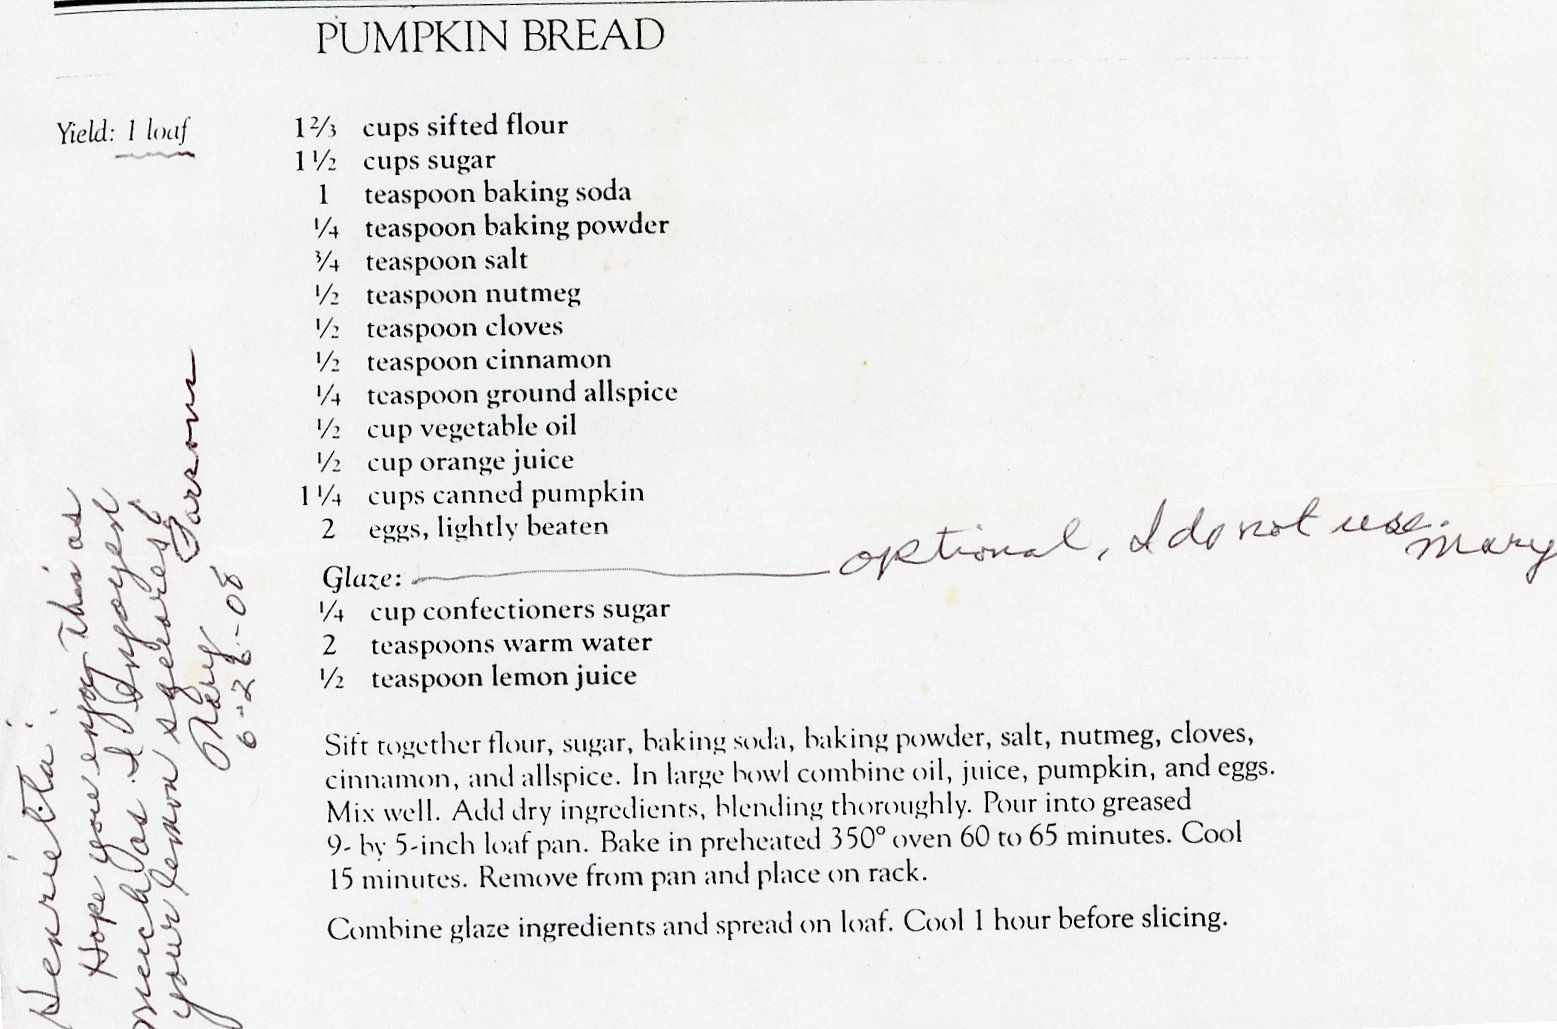 PUMPKIN BREAD
Yield: 1 loaf
1 2/3 cups sifted flour
1 1/2 cups sugar
1 teaspoon baking soda
1/4 teaspoon baking powder
3/4 teaspoon salt
1/2 teaspoon nutmeg
1/2 teaspoon cloves
1/2 teaspoon cinnamon
1/4 teaspoon ground allspice
1/2 cup vegetable oil
1/2 cup orange juice
1 1/4 cups canned pumpkin
2 eggs, lightly beaten
Glaze: optional, I do not use. Mary
1/4 cup confectioners sugar
2 teaspoons warm water
1/2 teaspoon lemon juice
Sift together flour, sugar, baking soda, baking powder, salt, nutmeg, cloves,
cinnamon, and allspice. In large bowl combine oil, juice, pumpkin, and eggs.
Mix well. Add dry ingredients, blending thoroughly. Pour into greased
9- by 5-inch loaf pan. Bake in preheated 350° oven 60 to 65 minutes. Cool
15 minutes. Remove from pan and place on rack.
Combine glaze ingredients and spread on loaf. Cool 1 hour before slicing.
Henrietta:
Hope you enjoy this as
much as I enjoyed
your lemon squares!
Mary Parsons
6-26-08